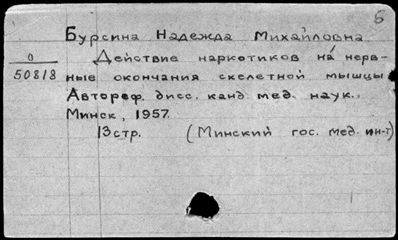 Б
Бурсина Надежда Михайловна
О
50818
Действие наркотиков на нерв-
ные окончания скелетной мышцы
Автореф. дисс. канд. мед. наук.
Минск, 1957.
13 стр. (Минский гос. мед. ин-т)